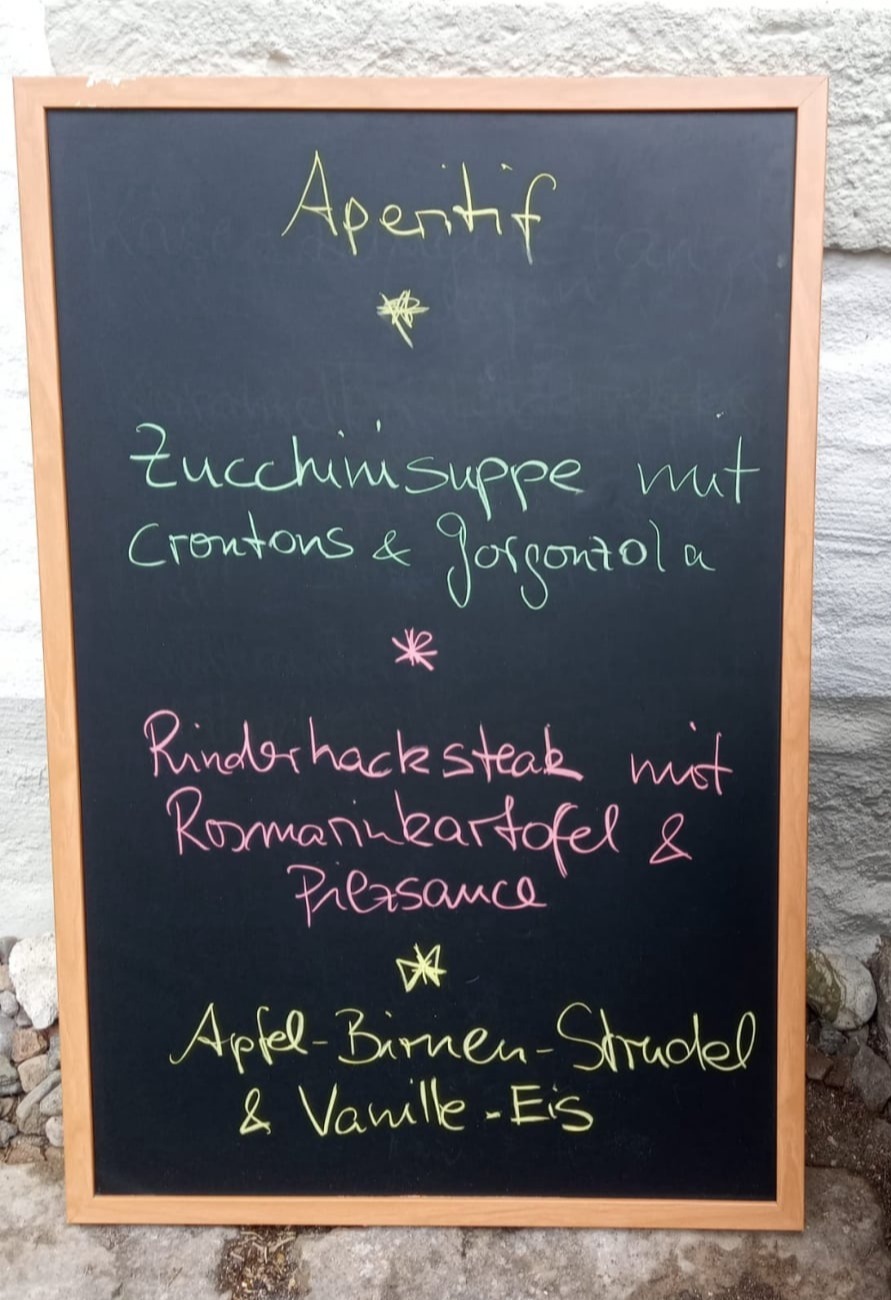 Aperitif
Zucchinisuppe mit
Croutons & Gorgonzola
Rinderhacksteak mit
Rosmarinkartofel &
Pilzsauce
Apfel-Birnen-Strudel
& Vanille-Eis